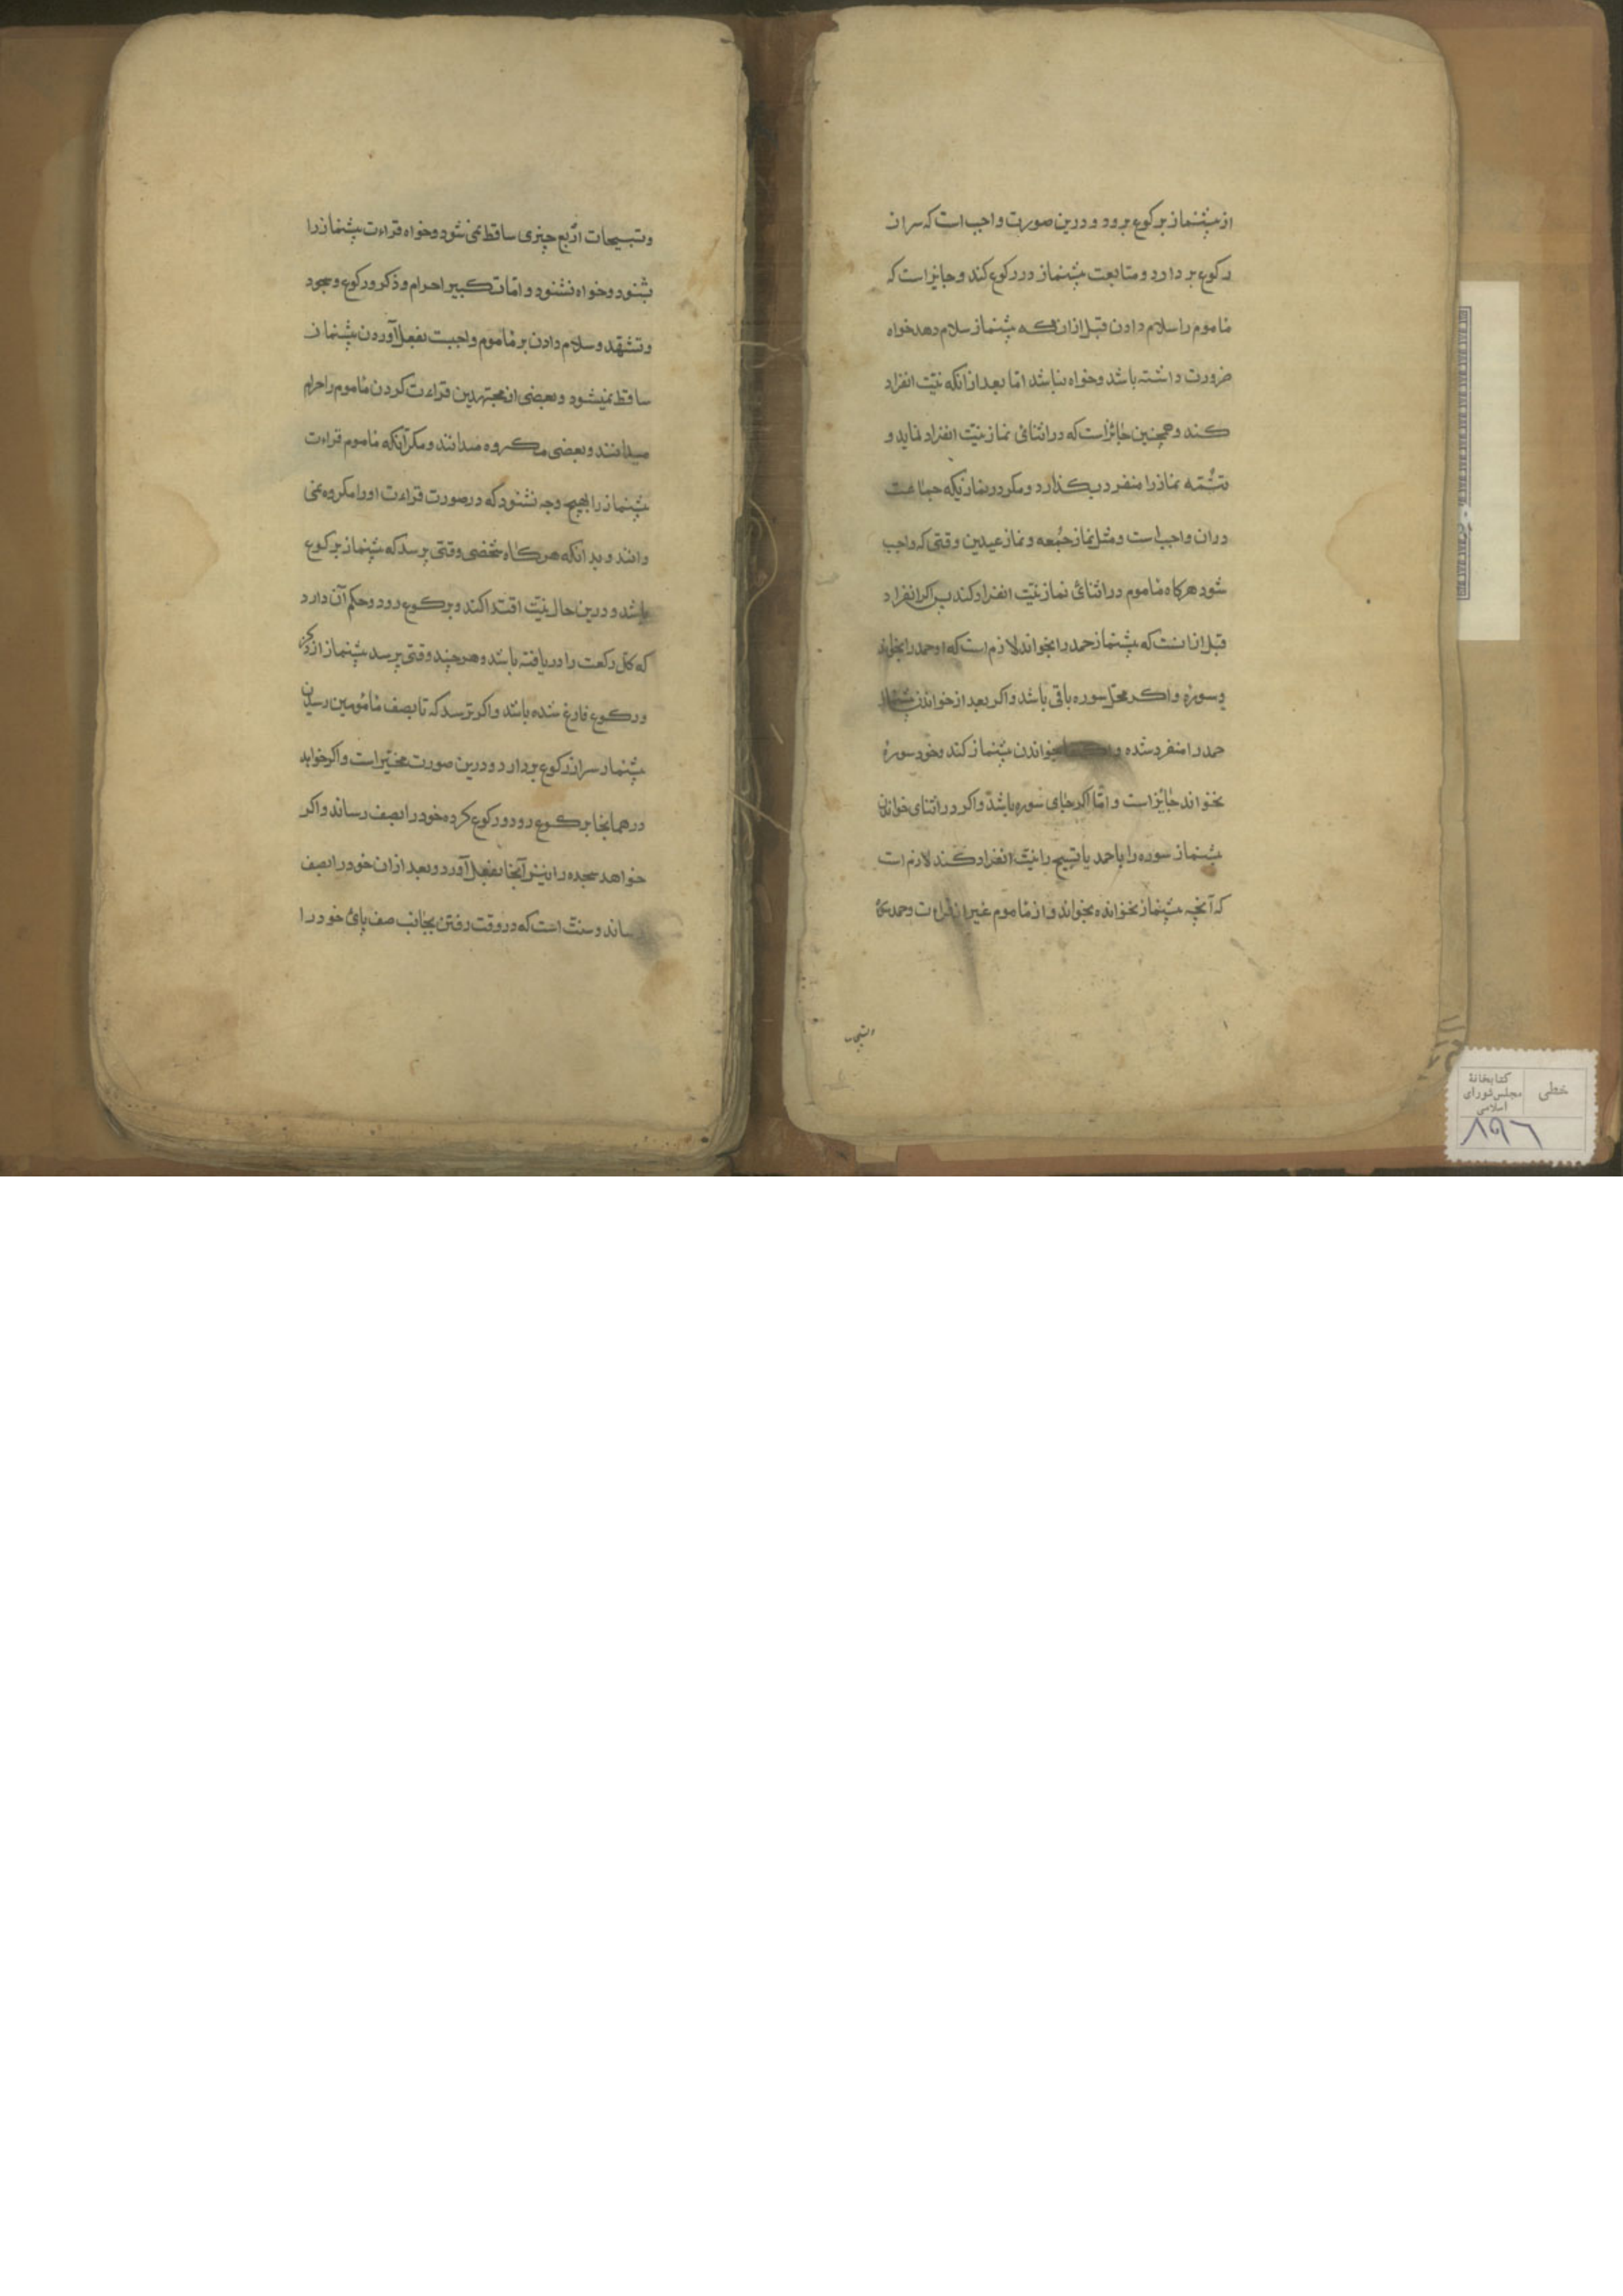 از پیشنماز برکوع برود و درین صورت واجب است که سر از
رکوع بر دارد و متابعت پیشنماز در رکوع کند و جایز است که
ماموم را سلام دادن قبل از انکه پیشنماز سلام دهد خواه
ضرورت داشته باشد و خواه نباشد امّا بعد از انکه نیّت انفراد
کند و همچنین جایز است که در اثنائ نماز نیّت انفراد نماید و
تتمّه نماز را منفرد بکذارد و مکر در نمازیکه جماعت
دران واجب است و مثل نماز جمُعه و نماز عیدین وقتی که واجب
شود هرکاه ماموم در اثنائ نماز نیّت انفراد کند پس اکر انفراد
قبل از انست که پیشنماز حمد را بخواند لازم است که او حمد را بخواند
و سوره و اکر محلّ سوره باقی باشد و اکر بعد از خواندن پیشنماز
حمد را منفرد شده بخواندن پیشنماز کند و خود سورهٔ
نخواند جایز است و امّا اکر جای سوره باشد و اکر در اثنای خواندن
پیشنماز سوره را یا حمد یا تسبیح را نیّت انفراد کند لازم است
که آنچه پیشنماز نخوانده بخواند و از ماموم غیر از قراءت و حمد
و تسبیحات
وتسبیحات اربع چیزی ساقط نمی شود و خواه قراءت پیشنماز را
بشنود و خواه نشنود و امّا تکبیر احرام و ذکر و رکوع و سجود
و تشهّد و سلام دادن بر ماموم واجبست بفعل آوردن پیشنماز
ساقط نمیشود و بعضی از مجتهدین قراءت کردن ماموم را حرام
میدانند و بعضی مکروه میدانند و مکر آنکه ماموم قراءت
پیشنماز را بهیچ وجه نشنود که در صورت قراءت او را مکروه نمی
دانند و بدانکه هرکاه شخصی وقتی برسد که پیشنماز برکوع
باشد و درین حال نیّت اقتدا کند و برکوع رود و حکم آن دارد
که کلّ رکعت را دریافته باشد و هرچند وقتی برسد پیشنماز از ذکر
و رکوع فارغ شده باشد و اکر ترسد که تا بصف مامومین رسیدن
پیشنماز سر از رکوع بردارد و درین صورت مخیّر است و اکر خواهد
در همانجا برکوع رود و رکوع کرده خود را بصف رساند و اکر
خواهد سجده را نیز آنجا بفعل آورد و بعد از ان خود را بصف
رساند و سنّت است که در وقت رفتن بجانب صف پای خود را
خطی
کتابخانهٔ
مجلس شورای
اسلامی
۸۹۶